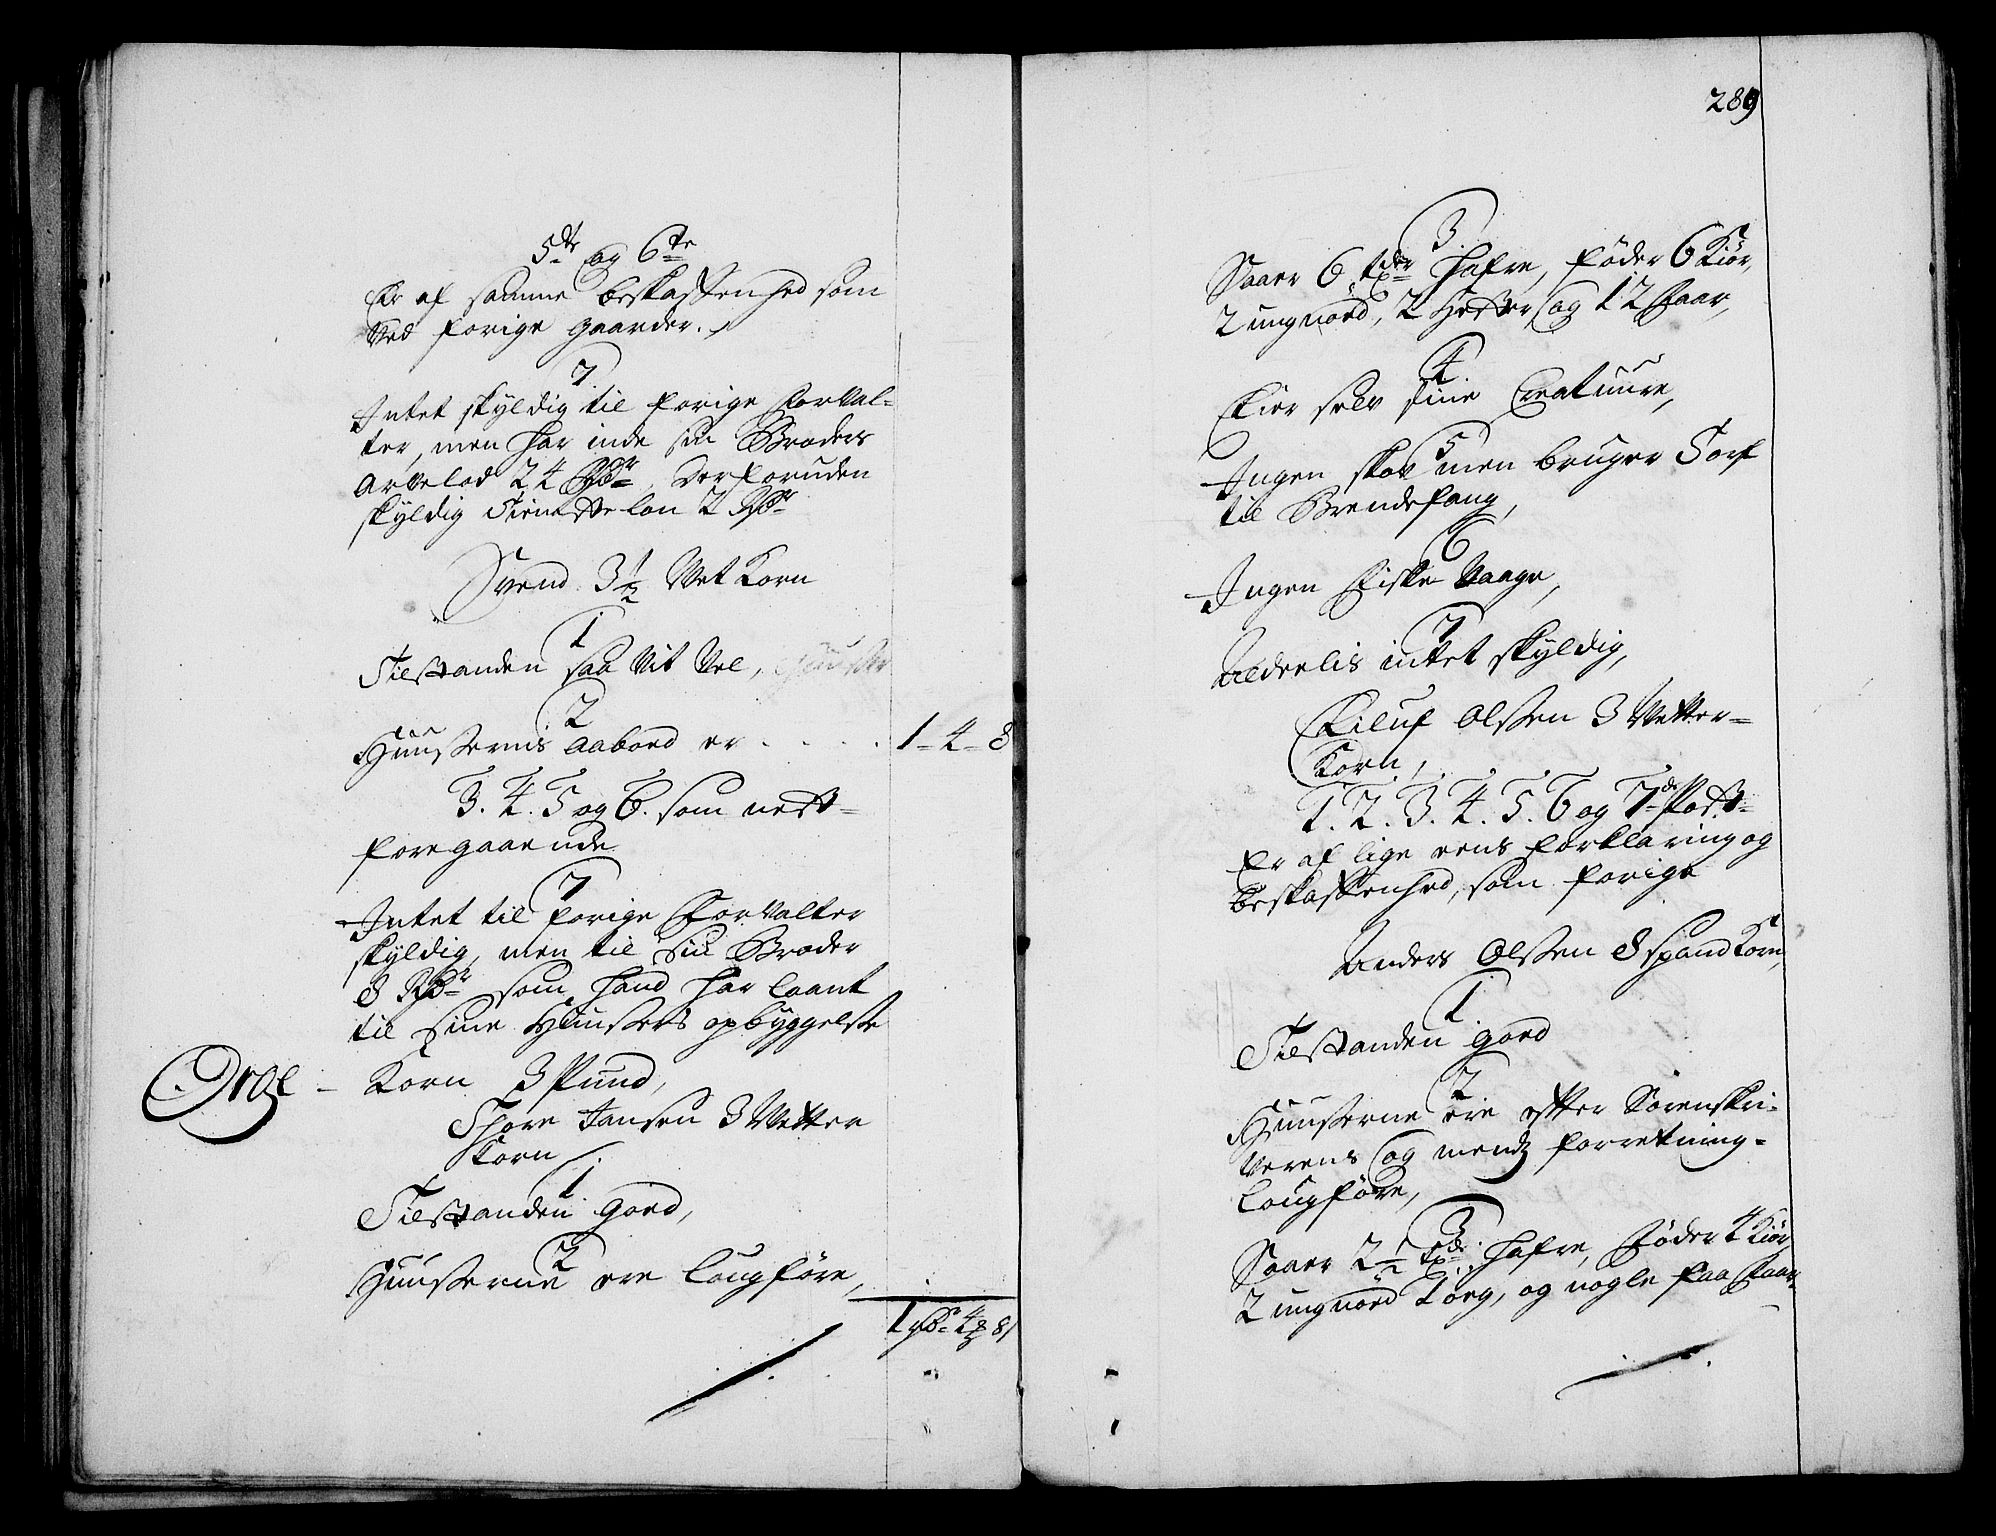 5te og 6te
Er af samme beskaffenhed som
Ved forige gaarder.
7
Intet skyldig til forige Forval-
ter, men har inde sin Broders
Arvelod 24 Rdr, derforuden
skyldig Tieniste lon 2 Rdr
Svend 3½ Vet Korn
1
Tilstanden saa Vit Vel,
2
Huusernis Aaboed er . . . . 1 - 4 - 8
3. 4. 5 og 6. som nest-
foregaaende
7
Intet til forige Forvalter
skyldig, men til Sin Broder
8 Rdr som hand har laant
til Sine Huusers opbyggelse
Korn 3 Pund,
Thore Jansen 3 Vetter
Korn
1
Tilstanden goed,
2
Huuserne ere laugføre,
1 rdr 4 8
289
3
Saaer 6 tdr hafre, føder 6 Kiør,
2 ungnød, 2 Hester og 12 Faar,
4
Eier selv sine Creatuure,
5
Ingen skov men bruger Torf
til Brendefang,
6
Ingen Fiske Vaage,
7
Aldeelis intet skyldig,
Eiluf Olsen 3 Vetter-
Korn,
1. 2. 3. 4. 5. 6 og 7de Post-
Er af lige eens forklaring og
beskaffenhed, som forige
Anders Olsen 8 spand Korn,
1
Tilstanden goed
2
Huuserne ere efter Sorenskri-
verens og mends forretning-
laugføre,
3
Saaer 2½ tde hafre, Føder 4 Kiør
2 ungnød 1 oeg, og nogle faa Faar-